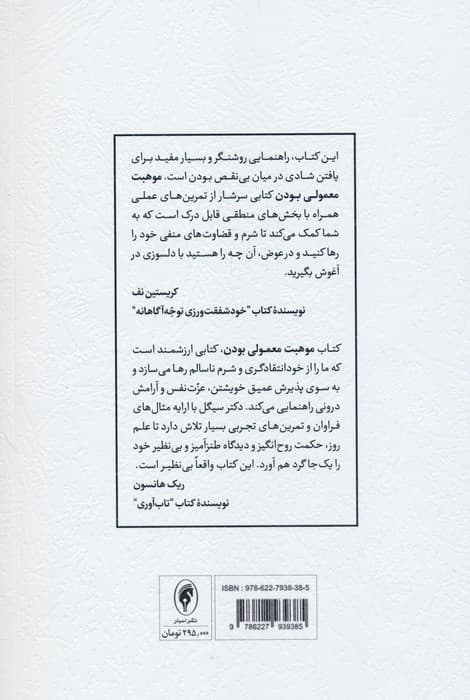 این کتاب، راهنمایی روشنگر و بسیار مفید برای
یافتن شادی در میان بی‌نقص بودن است. موهبت
معمولی بودن کتابی سرشار از تمرین‌های عملی
همراه با بخش‌های منطقی قابل درک است که به
شما کمک می‌کند تا شرم و قضاوت‌های منفی خود را
رها کنید و در عوض، آن چه را هستید با دلسوزی در
آغوش بگیرید.
کریستین نف
نویسندهٔ کتاب "خودشفقت‌ورزی توجّه‌آگاهانه"
کتاب موهبت معمولی بودن، کتابی ارزشمند است
که ما را از خودانتقادگری و شرم ناسالم رها می‌سازد و
به سوی پذیرش عمیق خویشتن، عزّت‌نفس و آرامش
درونی راهنمایی می‌کند. دکتر سیگل با ارایه مثال‌های
فراوان و تمرین‌های تجربی بسیار تلاش دارد تا علم
روز، حکمت روح‌انگیز و دیدگاه طنزآمیز و بی‌نظیر خود
را یک‌جا گرد هم آورد. این کتاب واقعاً بی‌نظیر است.
ریک هانسون
نویسندهٔ کتاب "تاب‌آوری"
ISBN : 978-622-7939-38-5
9 786227 939385
نشر اسبار
۲۹۵,۰۰۰ تومان